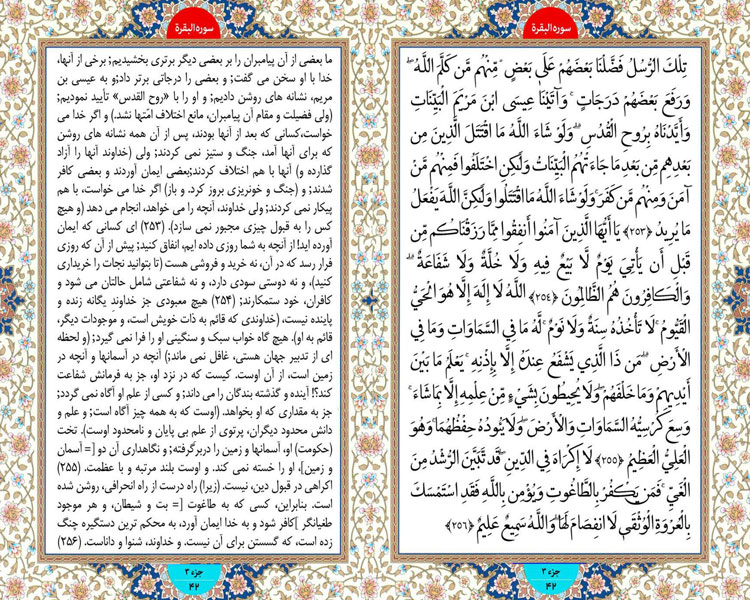 سوره البقرة
تِلْكَ الرُّسُلُ فَضَّلْنَا بَعْضَهُمْ عَلَىٰ بَعْضٍ ۘ مِنْهُم مَّن كَلَّمَ اللَّهُ ۖ
وَرَفَعَ بَعْضَهُمْ دَرَجَاتٍ ۚ وَآتَيْنَا عِيسَى ابْنَ مَرْيَمَ الْبَيِّنَاتِ
وَأَيَّدْنَاهُ بِرُوحِ الْقُدُسِ ۗ وَلَوْ شَاءَ اللَّهُ مَا اقْتَتَلَ الَّذِينَ مِن
بَعْدِهِم مِّن بَعْدِ مَا جَاءَتْهُمُ الْبَيِّنَاتُ وَلَٰكِنِ اخْتَلَفُوا فَمِنْهُم مَّنْ
آمَنَ وَمِنْهُم مَّن كَفَرَ ۚ وَلَوْ شَاءَ اللَّهُ مَا اقْتَتَلُوا وَلَٰكِنَّ اللَّهَ يَفْعَلُ
مَا يُرِيدُ ﴿۲۵۳﴾ يَا أَيُّهَا الَّذِينَ آمَنُوا أَنفِقُوا مِمَّا رَزَقْنَاكُم مِّن
قَبْلِ أَن يَأْتِيَ يَوْمٌ لَّا بَيْعٌ فِيهِ وَلَا خُلَّةٌ وَلَا شَفَاعَةٌ ۗ
وَالْكَافِرُونَ هُمُ الظَّالِمُونَ ﴿۲۵۴﴾ اللَّهُ لَا إِلَٰهَ إِلَّا هُوَ الْحَيُّ
الْقَيُّومُ ۚ لَا تَأْخُذُهُ سِنَةٌ وَلَا نَوْمٌ ۚ لَّهُ مَا فِي السَّمَاوَاتِ وَمَا فِي
الْأَرْضِ ۗ مَن ذَا الَّذِي يَشْفَعُ عِندَهُ إِلَّا بِإِذْنِهِ ۚ يَعْلَمُ مَا بَيْنَ
أَيْدِيهِمْ وَمَا خَلْفَهُمْ ۖ وَلَا يُحِيطُونَ بِشَيْءٍ مِّنْ عِلْمِهِ إِلَّا بِمَا شَاءَ ۚ
وَسِعَ كُرْسِيُّهُ السَّمَاوَاتِ وَالْأَرْضَ ۖ وَلَا يَئُودُهُ حِفْظُهُمَا ۚ وَهُوَ
الْعَلِيُّ الْعَظِيمُ ﴿۲۵۵﴾ لَا إِكْرَاهَ فِي الدِّينِ ۖ قَد تَّبَيَّنَ الرُّشْدُ مِنَ
الْغَيِّ ۚ فَمَن يَكْفُرْ بِالطَّاغُوتِ وَيُؤْمِن بِاللَّهِ فَقَدِ اسْتَمْسَكَ
بِالْعُرْوَةِ الْوُثْقَىٰ لَا انفِصَامَ لَهَا ۗ وَاللَّهُ سَمِيعٌ عَلِيمٌ ﴿۲۵۶﴾
جزء ۳
۴۲
سوره البقرة
ما بعضی از آن پیامبران را بر بعضی دیگر برتری بخشیدیم; برخی از آنها،
خدا با او سخن می گفت; و بعضی را درجاتی برتر داد;و به عیسی بن
مریم، نشانه های روشن دادیم; و او را با «روح القدس» تأیید نمودیم;
(ولی فضیلت و مقام آن پیامبران، مانع اختلاف امّتها نشد.) و اگر خدا می
خواست،کسانی که بعد از آنها بودند، پس از آن همه نشانه های روشن
که برای آنها آمد، جنگ و ستیز نمی کردند; ولی (خداوند آنها را آزاد
گذارده و) آنها با هم اختلاف کردند;بعضی ایمان آوردند و بعضی کافر
شدند; و (جنگ و خونریزی بروز کرد. و باز) اگر خدا می خواست، با هم
پیکار نمی کردند; ولی خداوند، آنچه را می خواهد، انجام می دهد (و هیچ
کس را به قبول چیزی مجبور نمی سازد). (۲۵۳) ای کسانی که ایمان
آورده اید!از آنچه به شما روزی داده ایم، انفاق کنید; پیش از آن که روزی
فرار رسد که در آن، نه خرید و فروشی هست (تا بتوانید نجات را خریداری
کنید)، و نه دوستی سودی دارد، و نه شفاعتی شامل حالتان می شود و
کافران، خود ستمکارند; (۲۵۴) هیچ معبودی جز خداوندِ یگانه زنده و
پاینده نیست، (خداوندی که قائم به ذات خویش است، و موجودات دیگر،
قائم به او). هیچ گاه خواب سبک و سنگینی او را فرا نمی گیرد; (و لحظه
ای از تدبیر جهان هستی، غافل نمی ماند;) آنچه در آسمانها و آنچه در
زمین است، از آن اوست. کیست که در نزد او، جز به فرمانش شفاعت
کند؟! آینده و گذشته بندگان را می داند; و کسی از علم او آگاه نمی گردد;
جز به مقداری که او بخواهد. (اوست که به همه چیز آگاه است; و علم و
دانش محدود دیگران، پرتوی از علم بی پایان و نامحدود اوست). تخت
(حکومت) او، آسمانها و زمین را دربرگرفته; و نگاهداری آن دو [= آسمان
و زمین]، او را خسته نمی کند. و اوست بلند مرتبه و با عظمت. (۲۵۵)
اکراهی در قبول دین، نیست. (زیرا) راه درست از راه انحرافی، روشن شده
است. بنابراین، کسی که به طاغوت [= بت و شیطان، و هر موجود
طغیانگر ]کافر شود و به خدا ایمان آورد، به محکم ترین دستگیره چنگ
زده است، که گسستن برای آن نیست. و خداوند، شنوا و داناست. (۲۵۶)
جزء ۳
۴۲